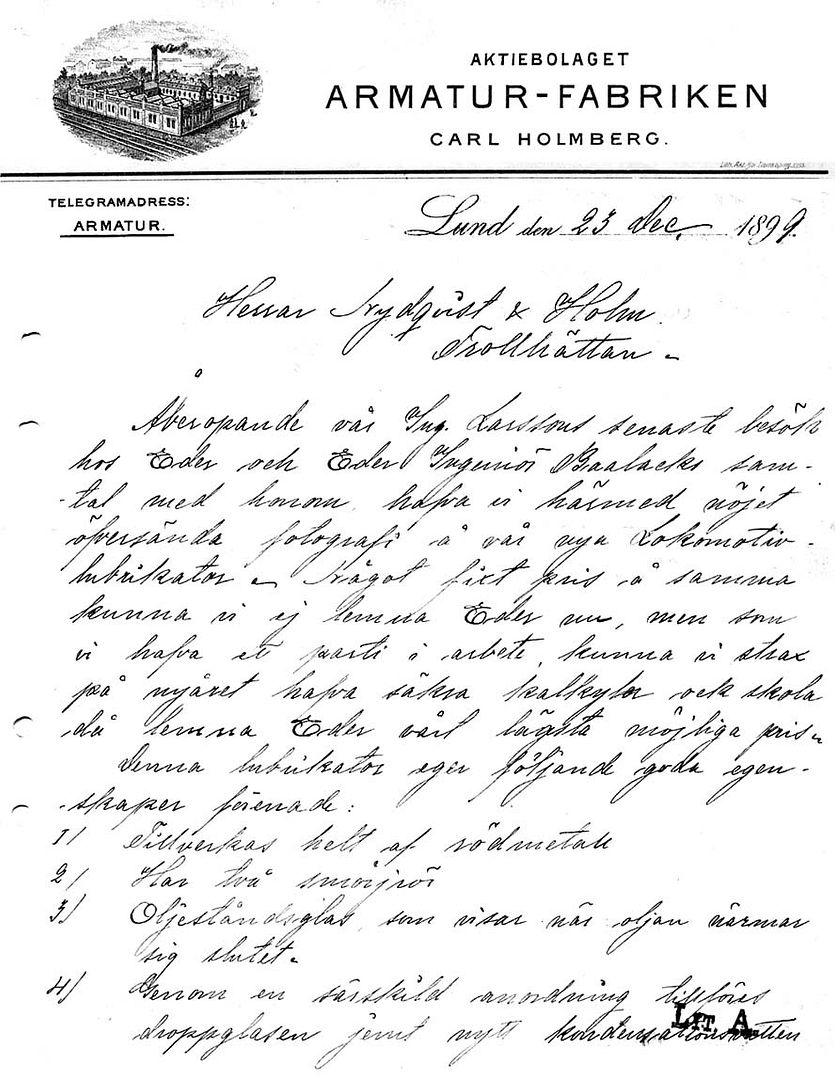 AKTIEBOLAGET
ARMATUR-FABRIKEN
CARL HOLMBERG.
TELEGRAMADRESS:
ARMATUR.
Lund den 23 Dec. 1899.
Herrar Nydqvist & Holm.
Trollhättan
Åberopande vår Ing. Larssons senaste besök
hos Eder och Eder Ingeniör Baalacks sam-
tal med honom, hafva vi härmed nöjet
öfversända fotografi å vår nya Lokomotiv-
lubrikator. Något fixt pris å samma
kunna vi ej lemna Eder nu, men som
vi hafva ett parti i arbete, kunna vi strax
på nyåret hafva säkra kalkyler och skola
då lemna Eder vårt lägsta möjliga pris.
Denna lubrikator eger följande goda egen-
skaper förenade:
1/ Tillverkas helt af rödmetall
2/ Har två smörjrör
3/ Oljeståndsglas, som visar när oljan närmar
sig slutet.
4/ Genom en särskild anordning tillföres
droppglasen jemt nytt kondensationsvatten
LIT. A.